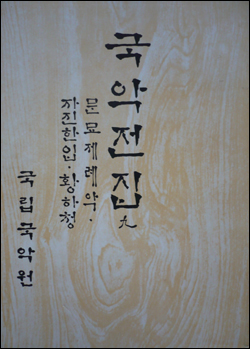 국악전집 九
문묘제례악·
자진한입·황하청
국립국악원